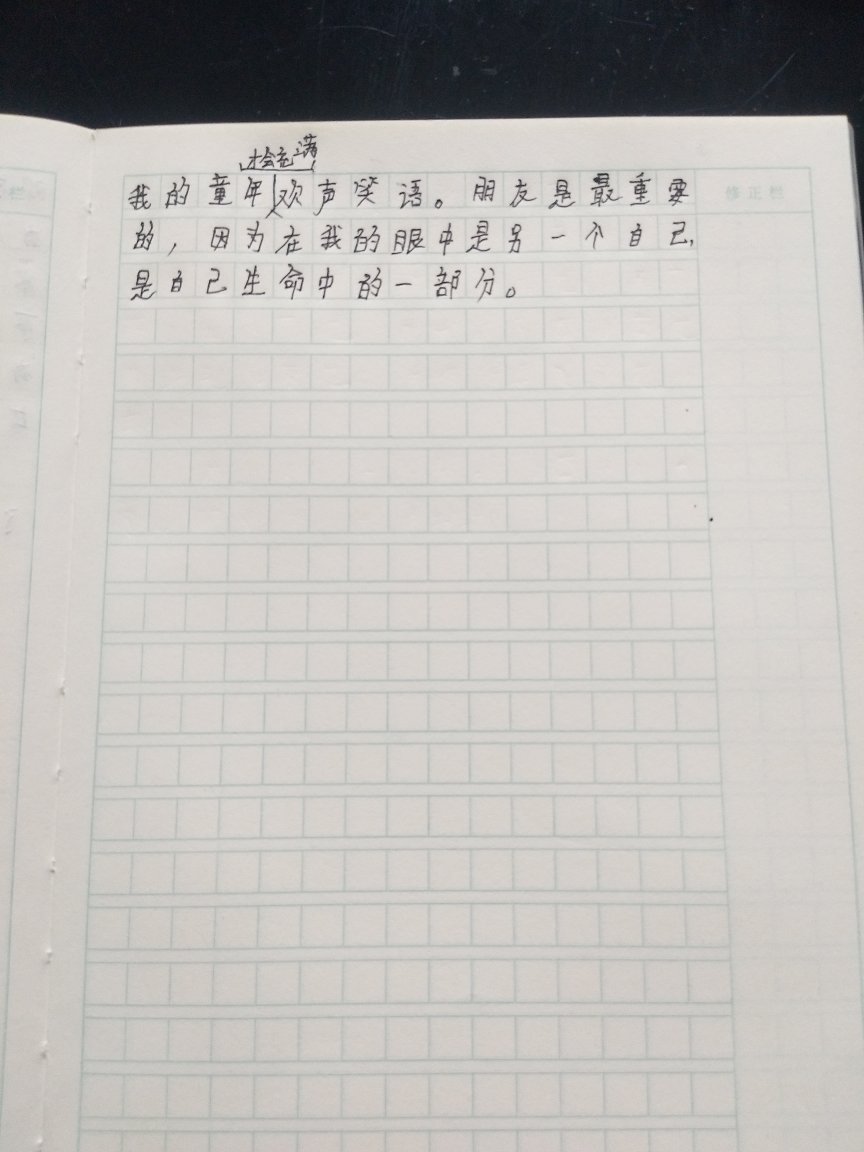 才会充满
我的童年欢声笑语。朋友是最重要
的，因为在我的眼中是另一个自己，
是自己生命中的一部分。
修正栏
栏